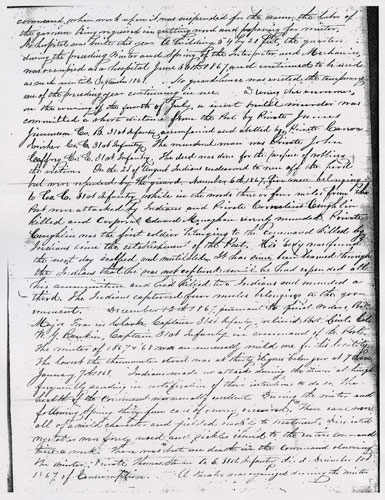 command, when work upon it was suspended for the season, the labor of
the garrison being required in cutting wood and preparing for winter.
No hospital was built this year. A building
during the preceding Winter and Spring of the Interpreter and Mechanics,
was occupied as a hospital June 1867, and continued to be used
as such until September 1868. No guardhouse was erected, the temporary
one of the preceding year continuing in use. During the summer,
on the evening of the fourth of July, a most brutal murder was
committed a short distance from the Post by Private James
Co. B. 31st Infantry, accompanied and abetted by Private
Co. C. 31st Infantry. The murdered man was Private John
Caffrey Co. C. 31st Infantry. The deed was done for the purpose of robbing
the victim. On the 21 of August Indians endeavored to run off the herd
but were repulsed by the guard. November 6th 1867, five men belonging
to Co. C. 31st Infantry, while in the woods three or four miles from the
Post were attacked by Indians and Private Cornelius Coughlin
killed and Corporal Edward Monaghan severely wounded. Private
Coughlin was the first soldier belonging to the command killed by
Indians since the establishment of the Post. His body was found
the next day scalped and mutilated. It has since been learned through
the Indians that he was not captured until he had expended all
his ammunition and had killed two Indians and wounded a
third. The Indians captured four mules belonging to the gov-
ernment. December 12th 1867, pursuant to
Major Francis Clarke Captain 31st Infantry, relieved Bvt. Lieut. Col.
W. J. Rankin, Captain 31st Infantry in command of the Post.
The winter of 1867 & 68 was an unusually mild one for his locality.
The lowest the thermometer stood was at thirty degrees below zero at 7
January 7th 1868. Indians made no attacks during the Winter although
frequently sending in notification of their intentions to do so. The
health of the command was usually excellent. During the winter and
following Spring fifty four cases of scurvy occurred. These cases were
all of a mild character and yielded readily to treatment. Desiccated
vegetables were freely used and pickles issued to the entire command
twice a week. There was but one death in the command during
the winter. Private Co. C. 31st Infantry died December
1867 of Consumption. A theatre was organized during the winter